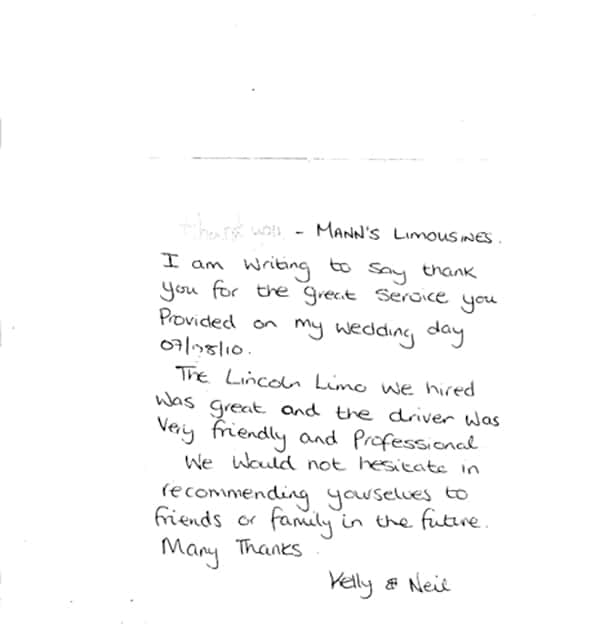 thank you - MANN'S LIMOUSINES.
I am writing to say thank
you for the great service you
Provided on my wedding day
07/08/10.
The Lincoln Limo we hired
was great and the driver was
very friendly and Professional
We would not hesitate in
recommending yourselves to
friends or family in the future.
Many Thanks
Kelly & Neil